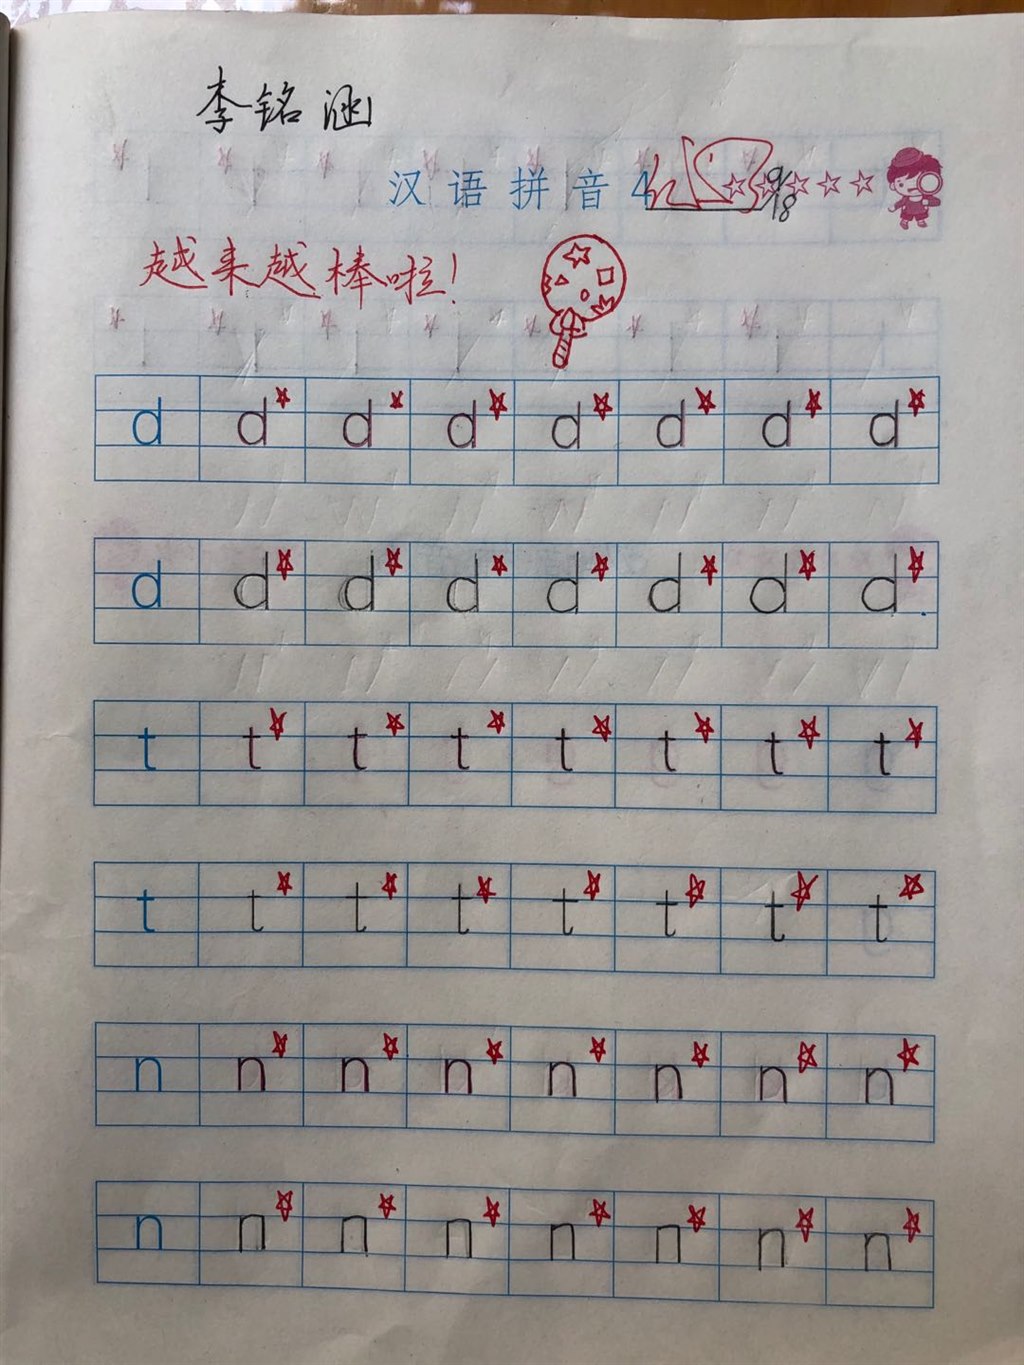 李铭涵
汉语拼音4
9/18
越来越棒啦!
d d d d d d d d
d d d d d d d d
t t t t t t t t
t t t t t t t t
n n n n n n n n
n n n n n n n n